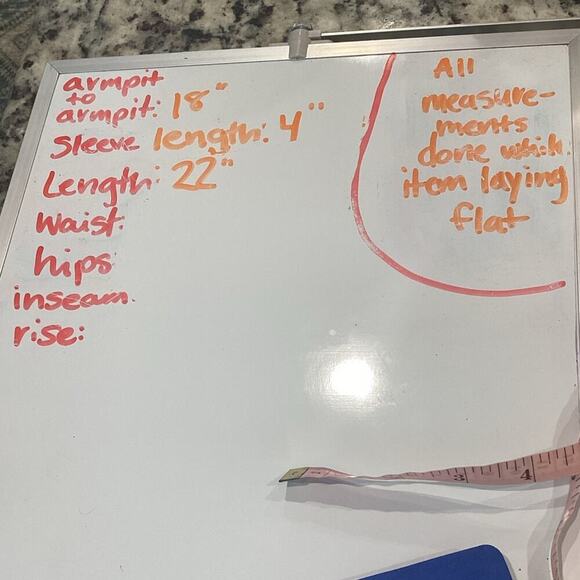 armpit
to
armpit: 18"
Sleeve length: 4"
Length: 22"
Waist:
hips
inseam.
rise:
All
measure-
ments
done which
item laying
flat
3
4